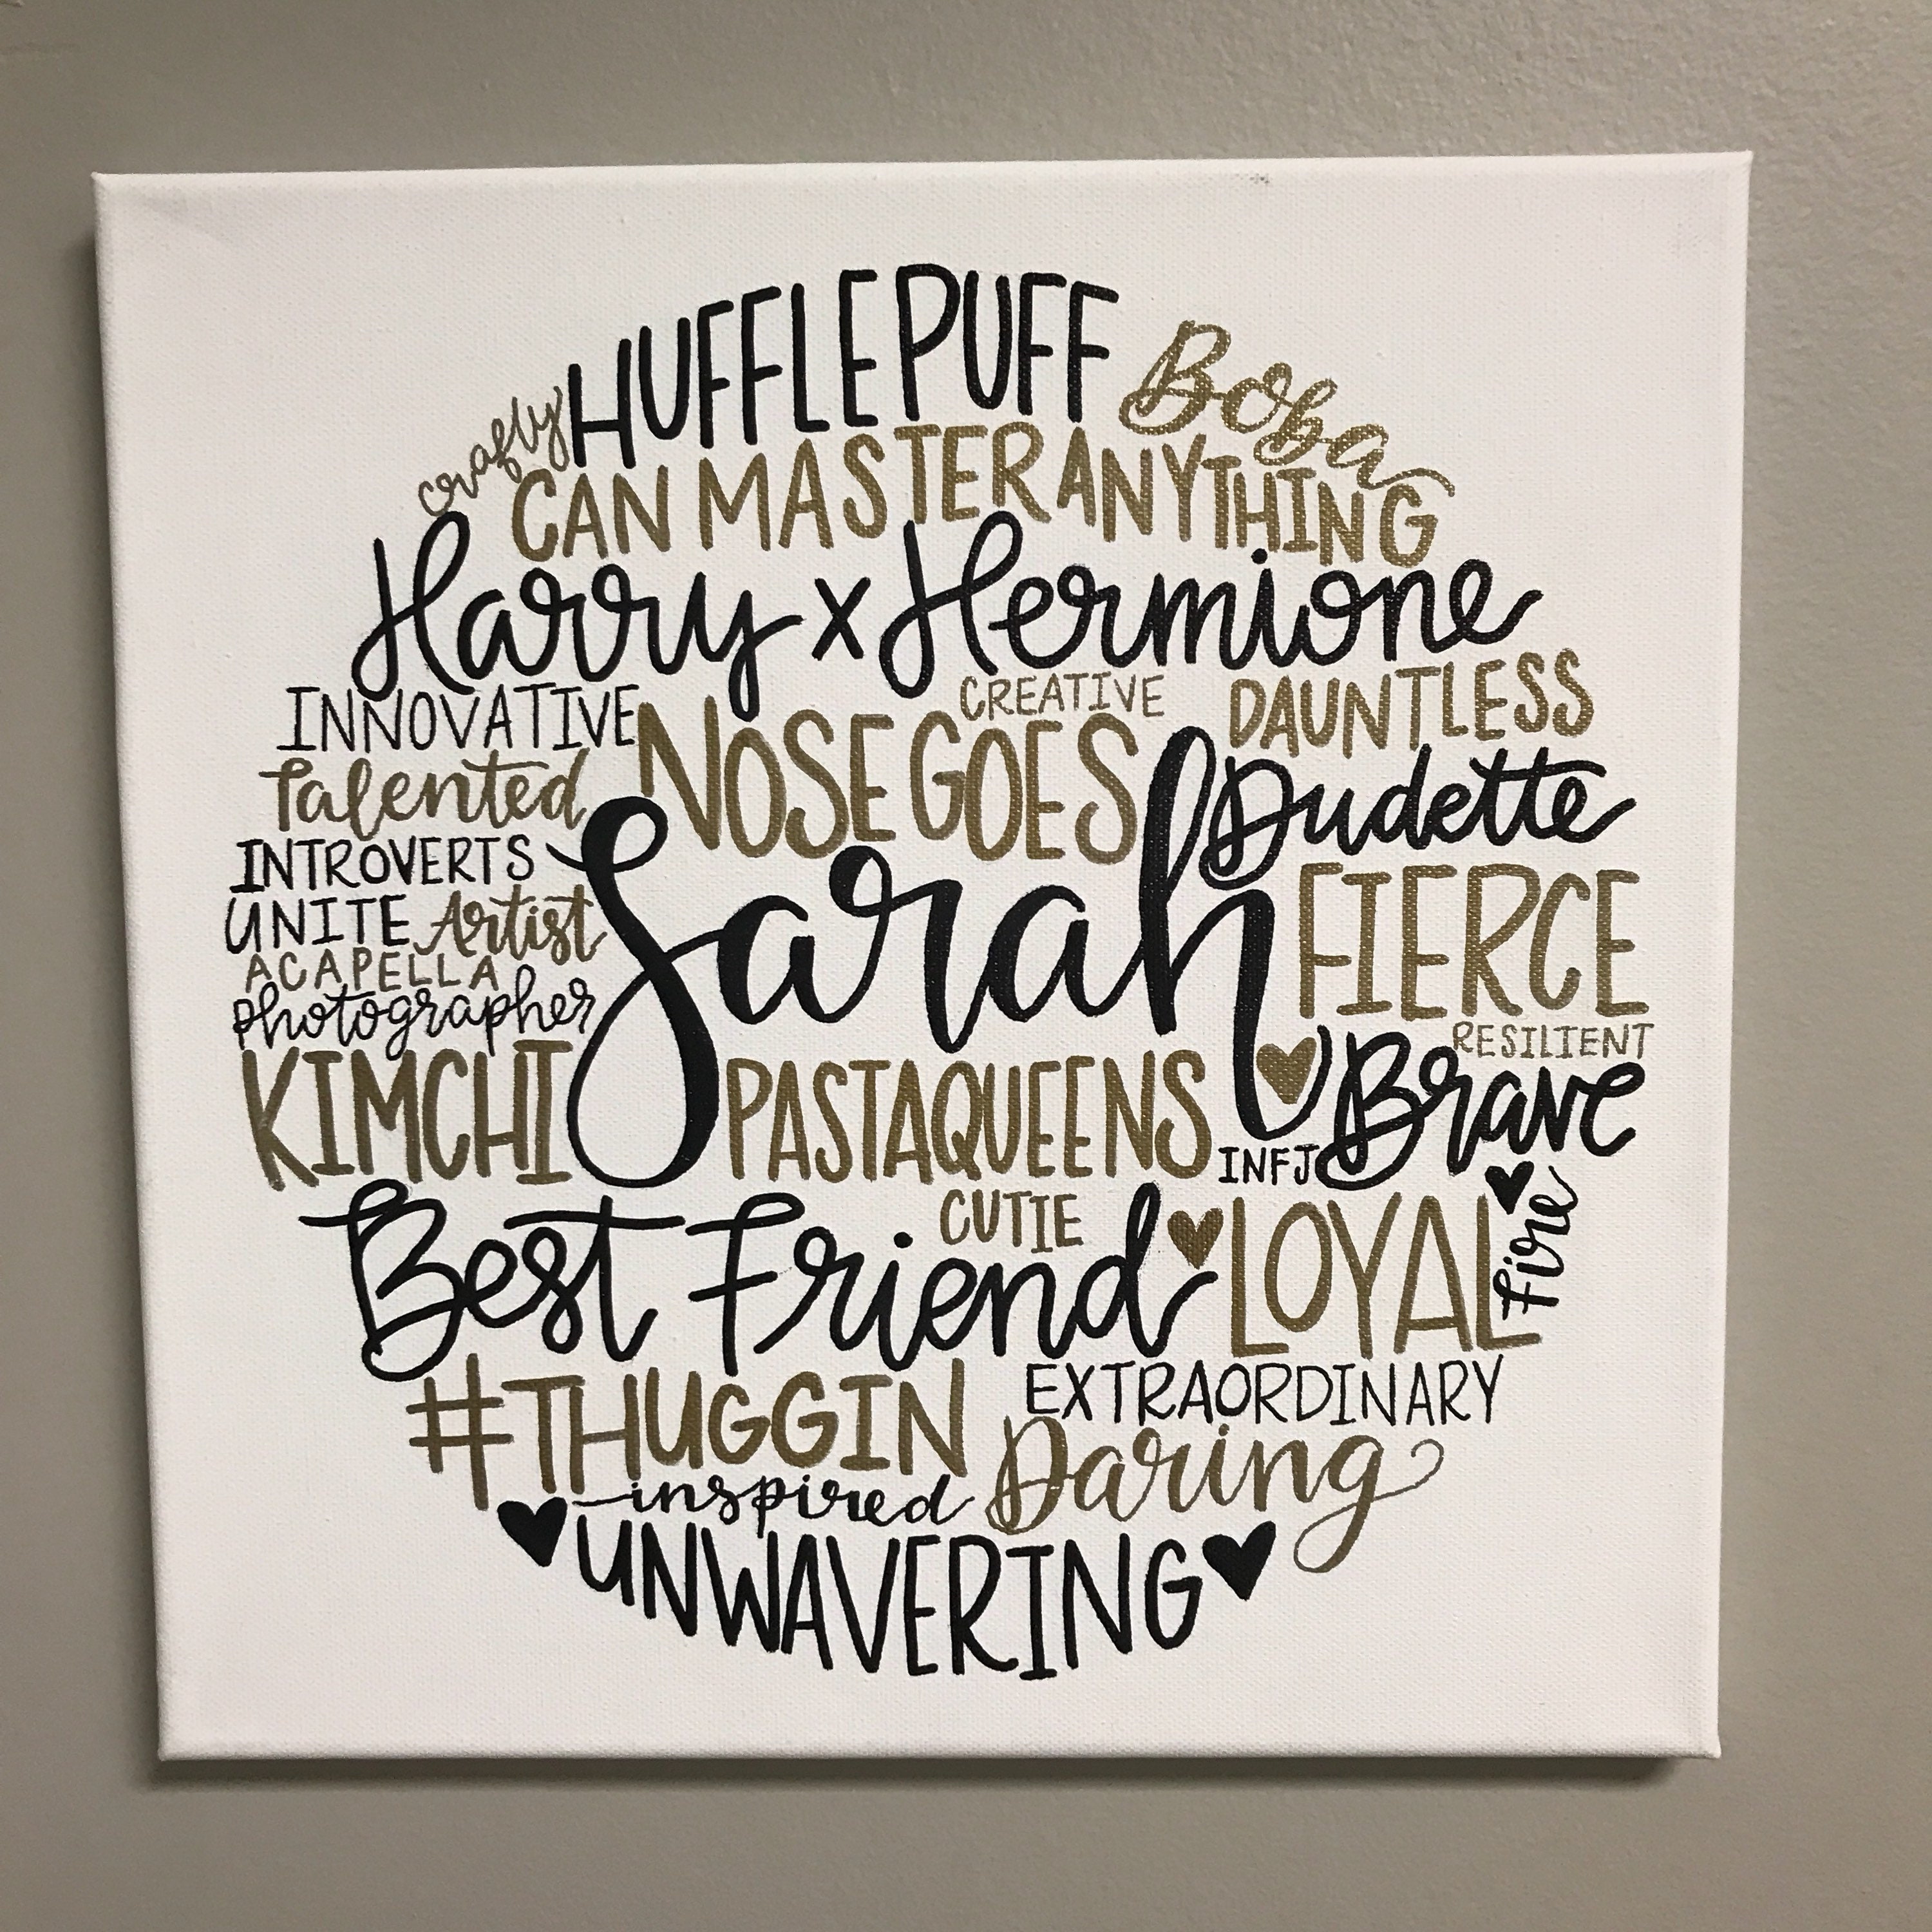 HUFFLEPUFF Boba
crafty
CAN MASTER ANYTHING
Harry x Hermione
INNOVATIVE
CREATIVE
DAUNTLESS
NOSE GOES
Talented
Dudette
INTROVERTS
UNITE Artist
Sarah
FIERCE
ACAPELLA
photographer
RESILIENT
KIMCHI
PASTAQUEENS
Brave
INFJ
CUTIE
Best Friend
LOYAL
fire
#THUGGIN
EXTRAORDINARY
inspired
Daring
UNWAVERING